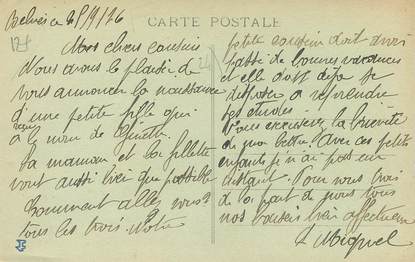 CARTE POSTALE
28/9/26
124
Mes chers cousins
Nous avons le plaisir de
vous annoncer la naissance
d'une petite fille qui
a le nom de Ginette.
La maman et la fillette
vont aussi bien que possible
Comment allez vous
tous les trois. Notre
petite cousine doit avoir
passé de bonnes vacances
et elle doit déjà se
disposer à reprendre
les études.
Vous excuserez la brièveté
de ma lettre. Avec ces petits
enfants je n'ai pas un
instant. Pour vous trois
de la part de nous tous
nos baisers bien affectueux
Miquel